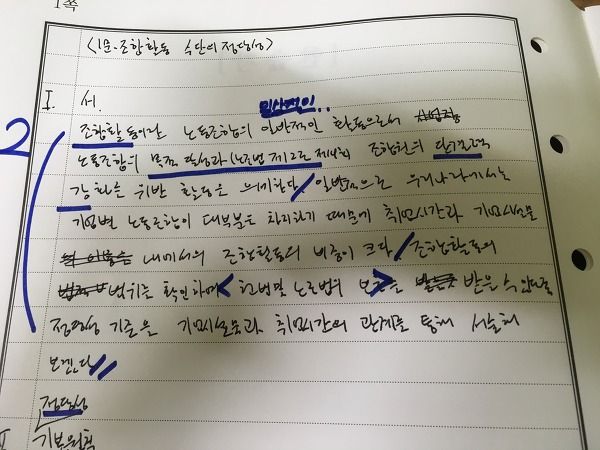 1쪽
<1문. 조합활동 수단의 정당성>
I. 서.
일상적인..
2
조합활동이란 노동조합의 일반적인 활동으로서
노동조합의 목적 달성과(노조법 제2조 제4호) 조합원의 단결력
강화를 위한 활동을 의미한다/일반적으로 우리나라에서는
기업별 노동조합이 대부분을 차지하기 때문에 취업시간과 기업시설물
내에서의 조합활동의 비중이 크다/조합활동의
범위를 확인하여 <헌법 및 노조법의 보호>를 받을 수 있는
정당성 기준은 기업시설물과 취업시간의 관계를 통해 서술해
보겠다//
정당성
기본원칙